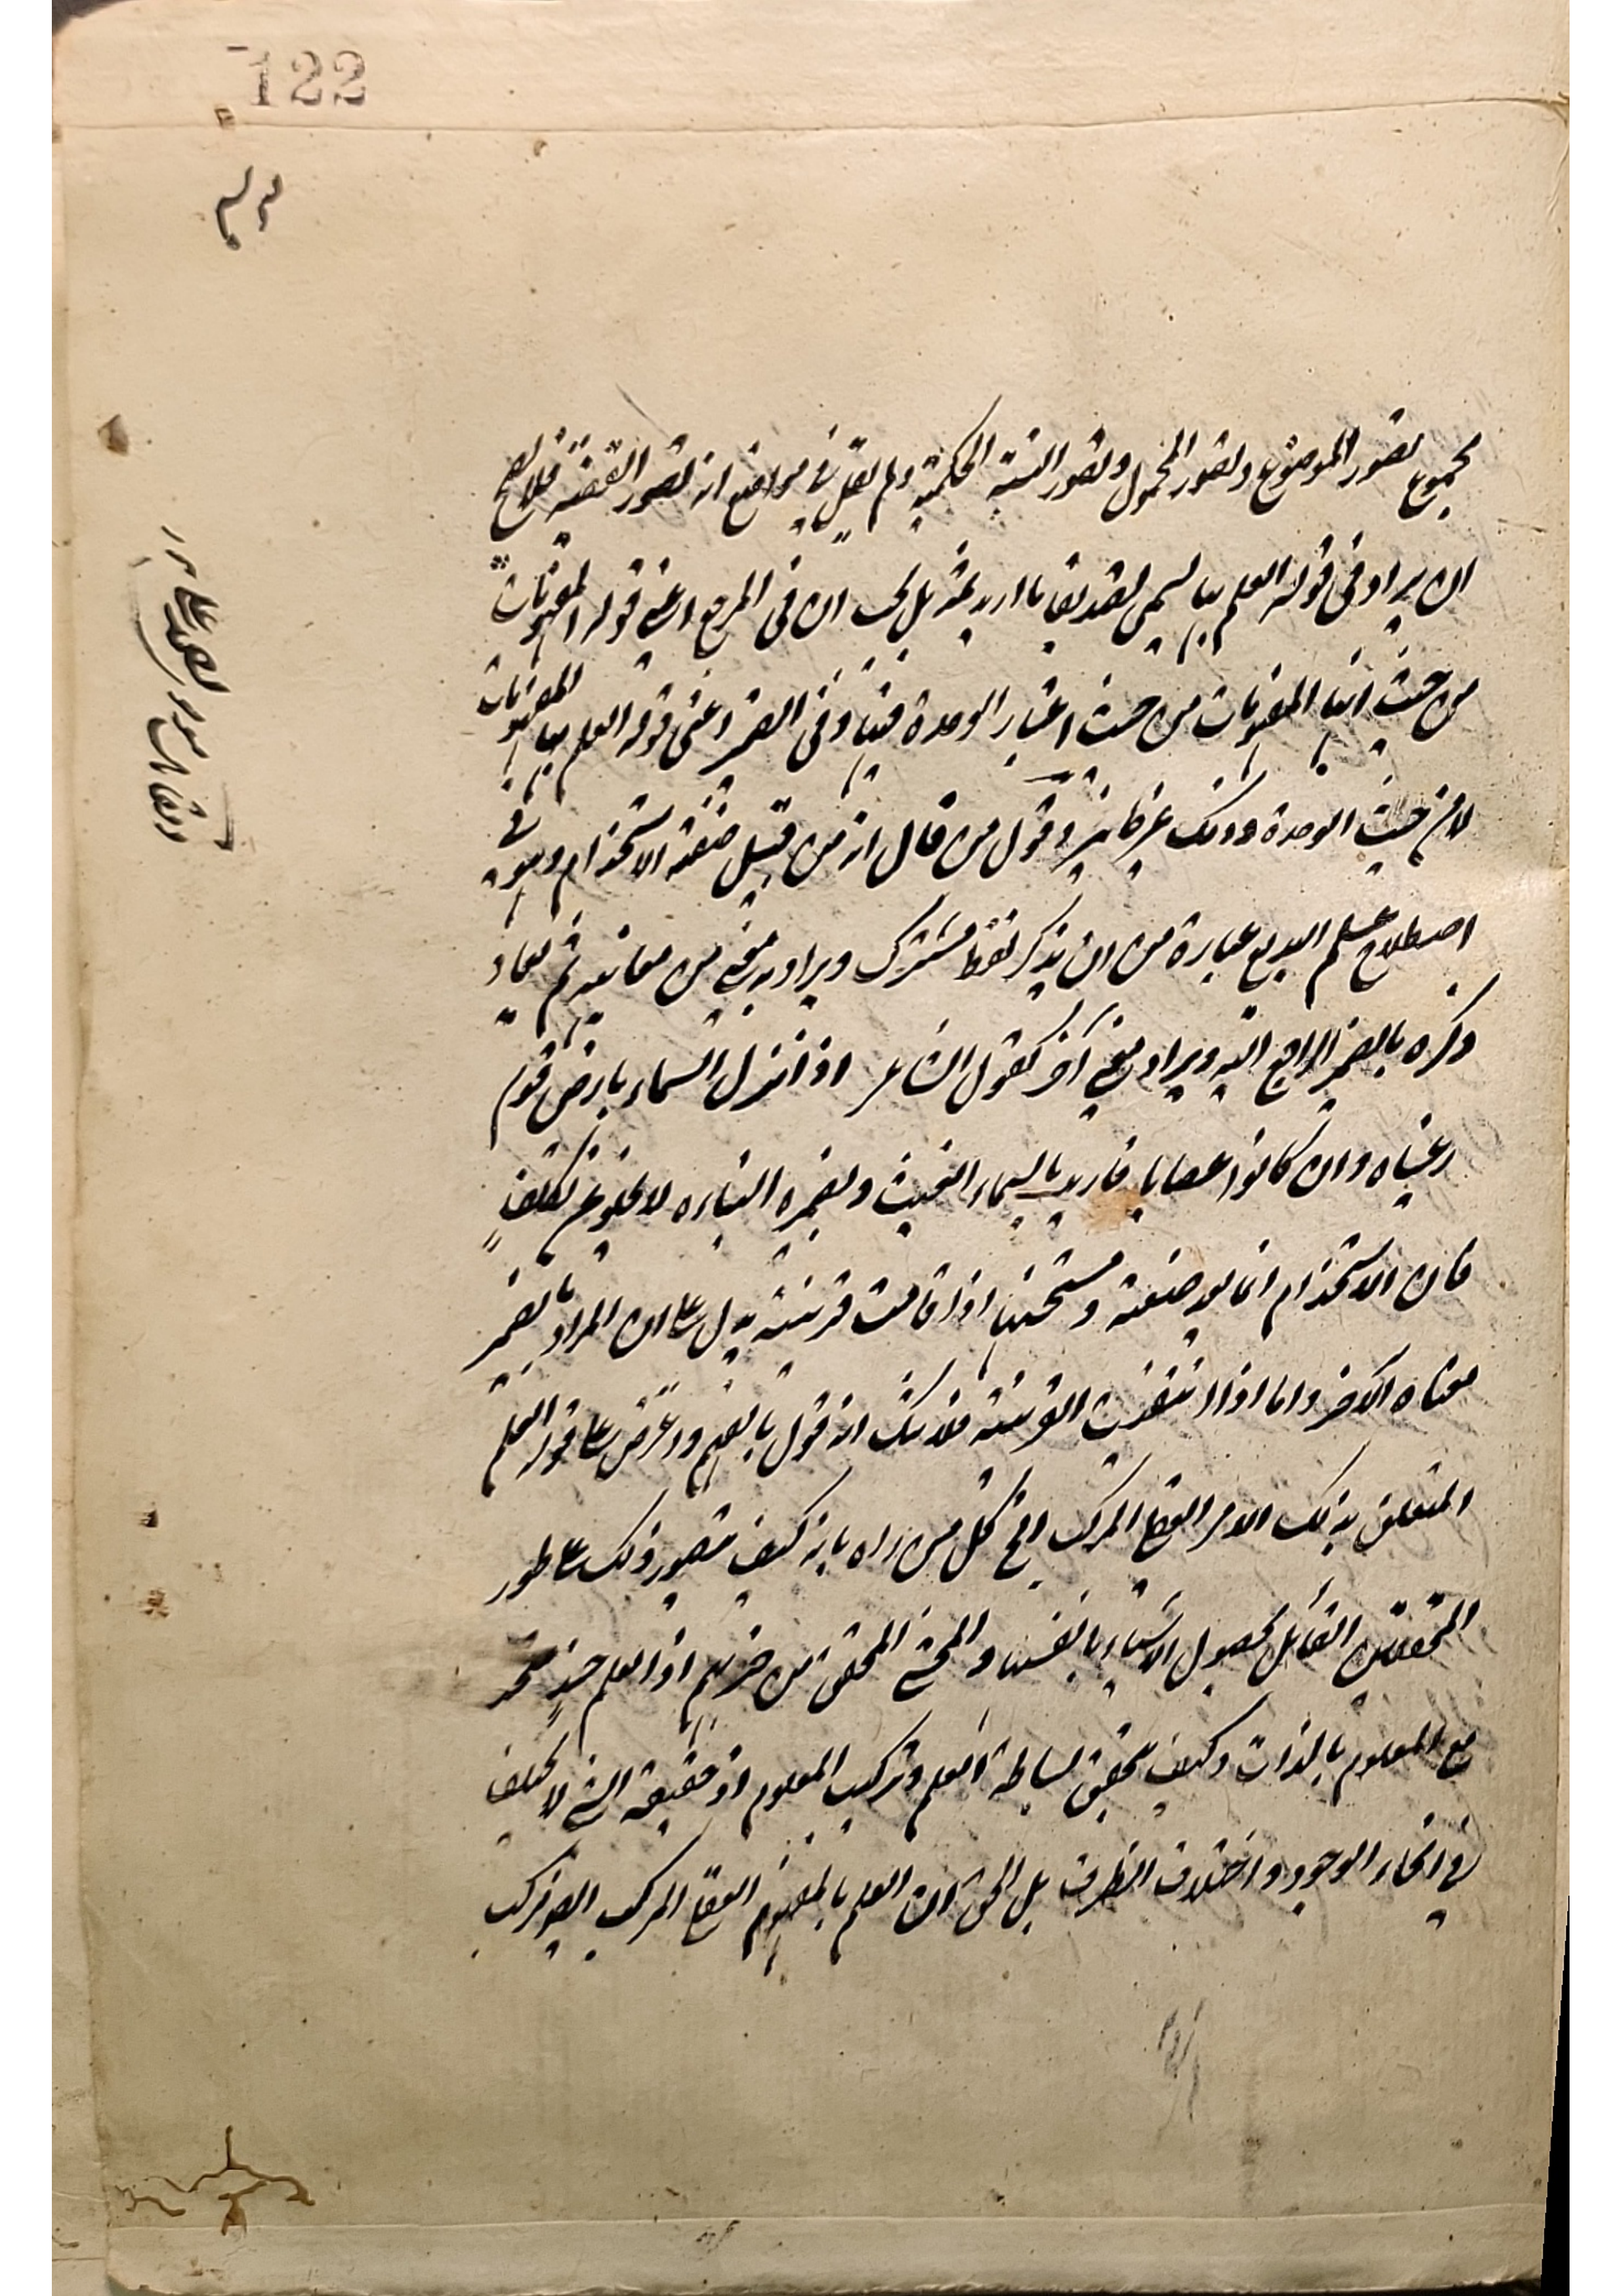 122
مجموع تصور الموضوع وتصور المحمول وتصور النسبة الحكمية ولم يقل فى مواضع انه تصور القضية فلا يصح
ان يراد فى قوله العلم بها يسمى تصديقا ما اريد ثمه بل يجب ان فى المرجع اعنى قوله المفهومات
من حيث انها المفهومات من حيث اعتبار الوحدة فيها وفى الضمير اعنى قوله العلم بها المفهومات
لا من حيث الوحدة وذلك غير جائز وقول من قال انه من قبيل صنعة الاستخدام وهو فى
اصطلاح علم البديع عبارة من ان يذكر لفظ مشترك ويراد به معنى من معانيه ثم يعاد
ذكره بالضمير الراجع اليه ويراد معنى آخر كقول الشاعر اذا نزل السماء بارض قوم
رعيناه وان كانوا غضابا فاريد بالسماء الغيث وبضميره النبات لا يخلو عن تكلف
فان الاستخدام انما يعد صنعة ومستحسنا اذا قامت قرينة يدل على ان المراد بالضمير
معناه الآخر واما اذا انتفت القرينة فلا شك انه قول بالفهم واعترض على قوله العلم
المتعلق بذلك الامر العقلى المركب الخ كل من راه بانه كيف يتصور ذلك على طور
المحققين القائل بحصول الاشياء بانفسها والمحشى المحقق من حزبهم اذ العلم حينئذ متحد
مع المعلوم بالذات وكيف يتحقق بساطة العلم وتركيب المعلوم اذ حقيقة الشئ لا يختلف
فى انحاء الوجود واختلاف الظرف بل الحق ان العلم بالمفهوم العقلى المركب ايضا مركب